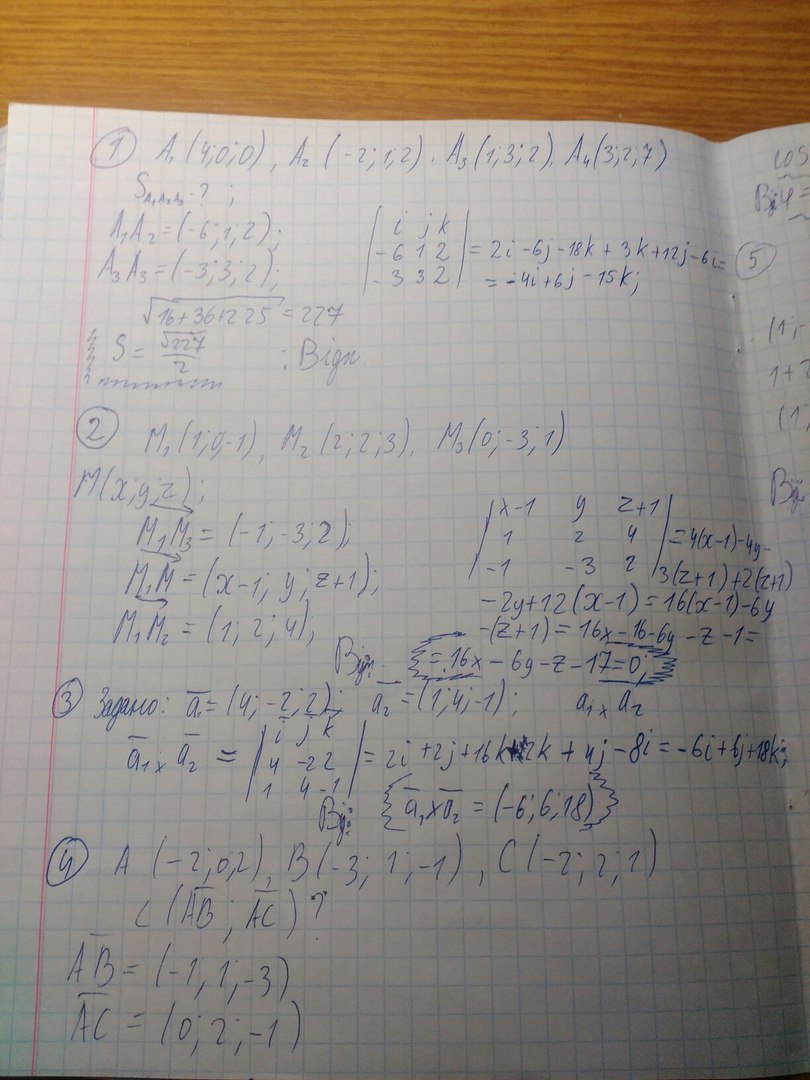 ① A₁(4;0;0), A₂(-2;1;2). A₃(1;3;2), A₄(3;2;7)
S_A₁A₂A₃ - ? ;
A₁A₂ = (-6; 1; 2);
A₃A₃ = (-3; 3; 2);
| i j k |
| -6 1 2 | = 2i - 6j - 18k + 3k + 12j - 6i =
| -3 3 2 | = -4i + 6j - 15k;
√16+36+225 = 227
S = √227 / 2 ; Відп.
② M₁(1;0;-1), M₂(2;2;3), M₃(0;-3;1)
M(x;y;z);
M₁M₃ = (-1; -3; 2);
M₁M = (x-1; y; z+1);
M₁M₂ = (1; 2; 4);
| x-1 y z+1 |
| 1 2 4 | = 4(x-1) - 4y -
| -1 -3 2 | 3(z+1) + 2(z+1)
- 2y + 12(x-1) = 16(x-1) - 6y
-(z+1) = 16x - 16 - 6y - z - 1 =
Від: = 16x - 6y - z - 17 = 0;
③ Задано: a₁ = (4; -2; 2); a₂ = (1; 4; -1); a₁ × a₂
| i j k |
a₁ × a₂ = | 4 -2 2 | = 2i + 2j + 16k + 2k + 4j - 8i = -6i + 6j + 18k;
| 1 4 -1 |
Від: a₁×a₂ = (-6; 6; 18)
④ A(-2;0;2), B(-3; 1; -1), C(-2; 2; 1)
∠(AB; AC) ?
AB = (-1; 1; -3)
AC = (0; 2; -1)
cos
⑤
(1;
1+
(1;